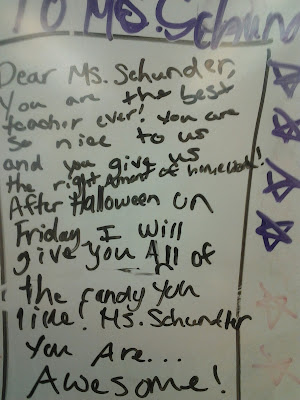 To Ms. Schund
Dear Ms. Schunder,
You are the best
teacher ever! You are
so nice to us
and you give us
the right amount of homework!
After Halloween on
Friday I will
give you All of
the candy you
like! Ms. Schunder
You Are...
Awesome!